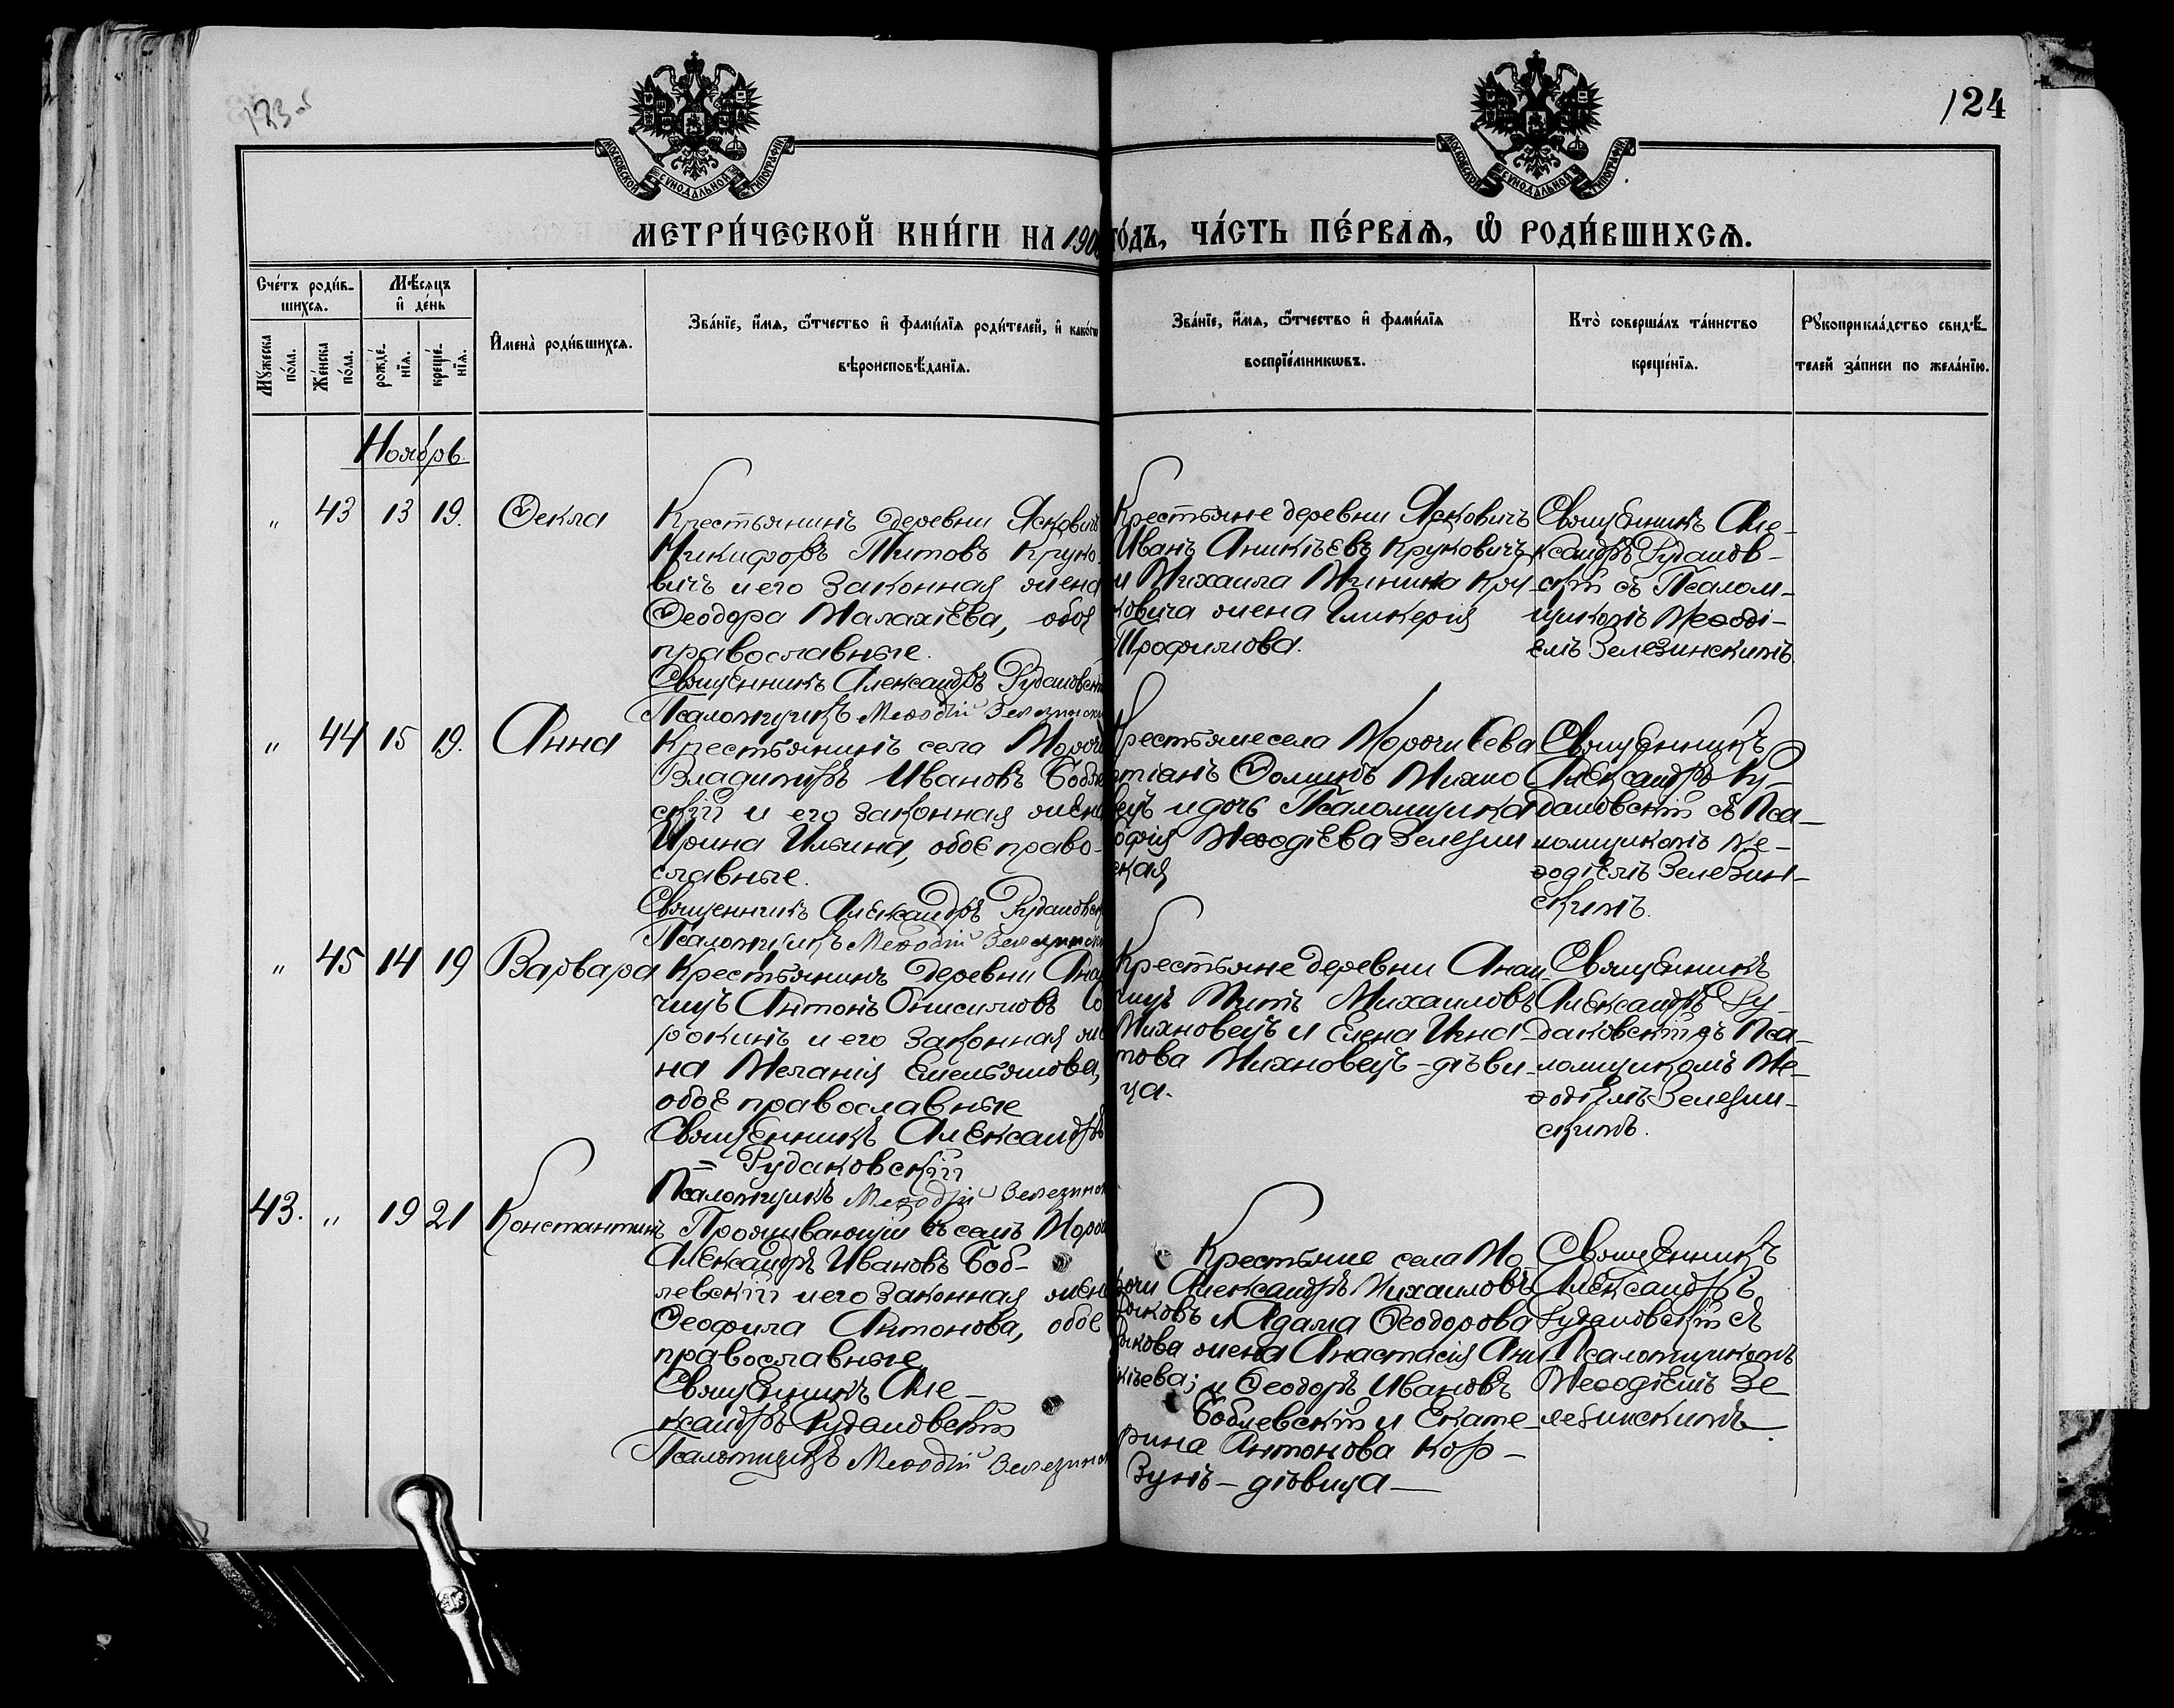 124
МОСКОВСКОЙ СѴНОДАЛЬНОЙ ТИПОГРАФІИ
МОСКОВСКОЙ СѴНОДАЛЬНОЙ ТИПОГРАФІИ
МЕТРИ́ЧЕСКОЙ КНИ́ГИ НА 190 ГО́ДЪ, ЧА́СТЬ ПЕ́РВАѦ, Ѽ РОДИ́ВШИХСѦ.
Сче́тъ роди́в-
шихсѧ.
Мꙋжеска по́ла.
Же́нска по́ла.
Мѣ́сѧцъ
и҆ де́нь
рожде́-
нїѧ.
креще́-
нїѧ.
И҆мена̀ роди́вшихсѧ.
Зва́нїе, и҆́мѧ, ѻ҆́тчество и҆ фами́лїѧ роди́телей, и҆ како́гѡ
вѣроисповѣ́данїѧ.
Зва́нїе, и҆́мѧ, ѻ҆́тчество и҆ фами́лїѧ
воспрїе́мникѡвъ.
Кто̀ соверша́лъ та́инство
креще́нїѧ.
Рꙋкоприкла́дство свидѣ́-
телей за́писи по жела́нїю.
Ноябрь.
" 43 13 19. Ѳекла
Крестьянинъ деревни Ясковичъ
Никифоръ Титовъ Круко-
вичъ и его законная жена
Ѳеодора Малахіева, обое
православные.
Священникъ Александръ Рудаковскій
Псаломщикъ Меѳодій Зелезинскі
Крестьяне деревни Ясковичъ
Иванъ Аникіевъ Круковичъ
и Михаила Минина Кру-
ковича жена Гликерія
Трофимова.
Священникъ Але-
ксандръ Рудаков-
скій съ Псалом-
щикомъ Меѳоді-
емъ Зелезинскимъ.
" 44 15 19. Анна
Крестьянинъ села Мороч
Владиміръ Ивановъ Бобл
скій и его законная жен
Ирина Ильина, обое право-
славные.
Священникъ Александръ Рудаковск
Псаломщикъ Меѳодій Зелезинскі
Крестьяне села Морочи Сева
стіанъ Ѳоминъ Михно
вецъ и дочь Псаломщика
офія Меѳодіева Зелезин
ская
Священникъ
Александръ Ру-
даковскій съ Пса-
ломщикомъ Ме-
ѳодіемъ Зелезин-
скимъ.
" 45 14 19 Варвара
Крестьянинъ деревни Ана
чицъ Антонъ Онисимовъ Со
рокинъ и его законная же
на Меланія Емельянова,
обое православные
Священникъ Александръ
= Рудаковскій
Псаломщикъ Меѳодій Зелезинск
Крестьяне деревни Анан-
чицъ Титъ Михаиловъ
Михновецъ и Елена Игна-
това Михновецъ - дѣви-
ца.
Священникъ
Александръ Ру-
даковскій съ Пса-
ломщикомъ Ме-
ѳодіемъ Зелезин-
скимъ.
43. " 19 21 Константинъ
Проживающій въ селѣ Мороч
Александръ Ивановъ Боб-
левскій и его законная жен
Ѳеофила Антонова, обое
православные
Священникъ Але-
ксандръ Рудаковскій
Псаломщикъ Меѳодій Зелезинск
Крестьяне села Мо
рочи Александръ Михаиловъ
и Адама Ѳеодорова
жена Анастасія Ани-
кіева; и Ѳеодоръ Ивановъ
Боблевскій и Екате-
рина Антонова Кор-
зунъ - дѣвица -
Священникъ
Александръ
Рудаковскій съ
Псаломщикомъ
Меѳодіемъ Зе
лезинскимъ.